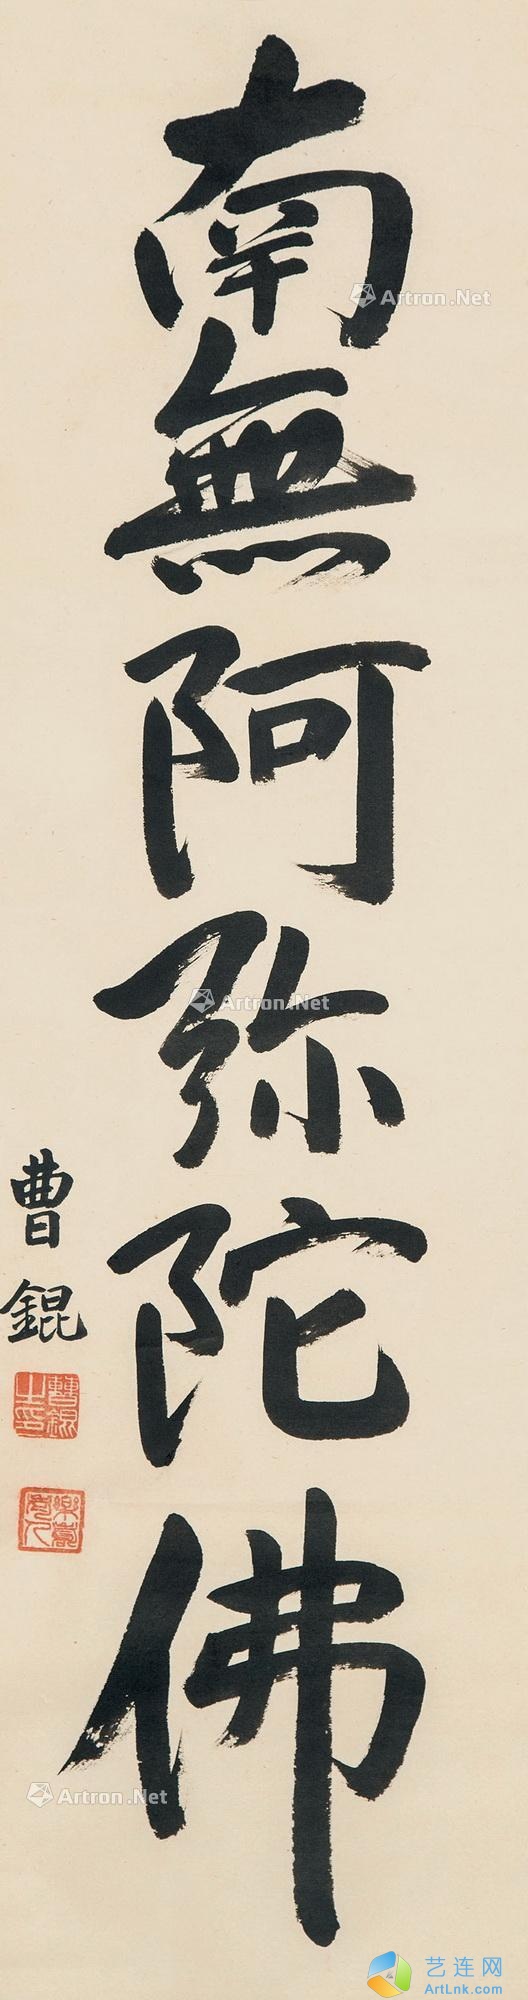 南無阿弥陀佛
曹錕
曹錕之印
樂嵩老人
Artron.Net
Artron.Net
Artron.Net
艺连网
ArtLnk.com